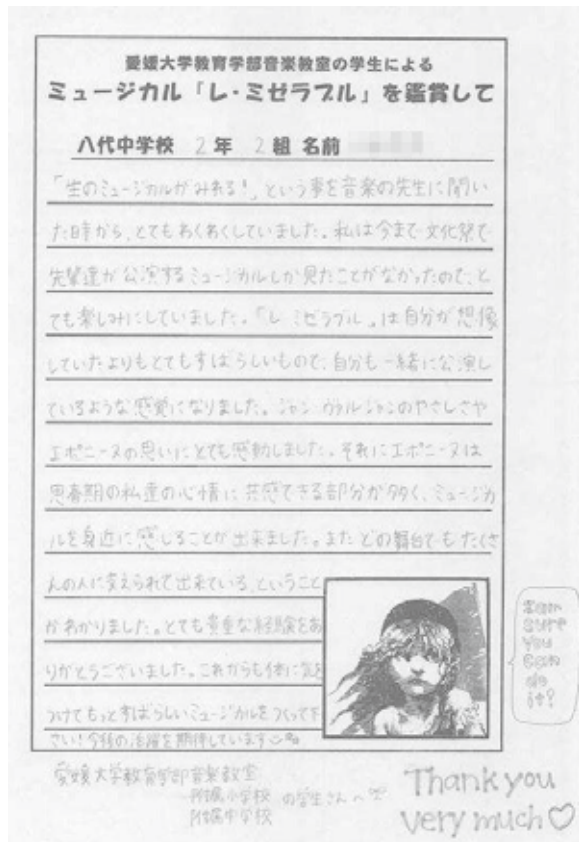 愛媛大学教育学部音楽教室の学生による
ミュージカル「レ・ミゼラブル」を鑑賞して
八代中学校 2年 2組 名前
「生のミュージカルがみれる!」という事を音楽の先生に聞い
た時から、とてもわくわくしていました。私は今まで文化祭で
先輩達が公演するミュージカルしか見たことがなかったので、と
ても楽しみにしていました。「レ ミゼラブル」は自分が想像
していたよりもとてもすばらしいもので、自分も一緒に公演し
ているような感覚になりました。ジャン ヴァルジャンのやさしさや
エポニーヌの思いにとても感動しました。それにエポニーヌは
思春期の私達の心情に共感できる部分が多く、ミュージカ
ルを身近に感じることが出来ました。また どの舞台でもたくさ
んの人に支えられて出来ている、ということ
がわかりました。とても貴重な経験をあ
りがとうございました。これからも体に気を
つけてもっとすばらしいミュージカルをつくって下
さい!今後の活躍を期待しています
愛媛大学教育学部音楽教室
附属小学校 の学生さんへ
附属中学校
I am
sure
you
can
do
it?
Thank you
very much♡